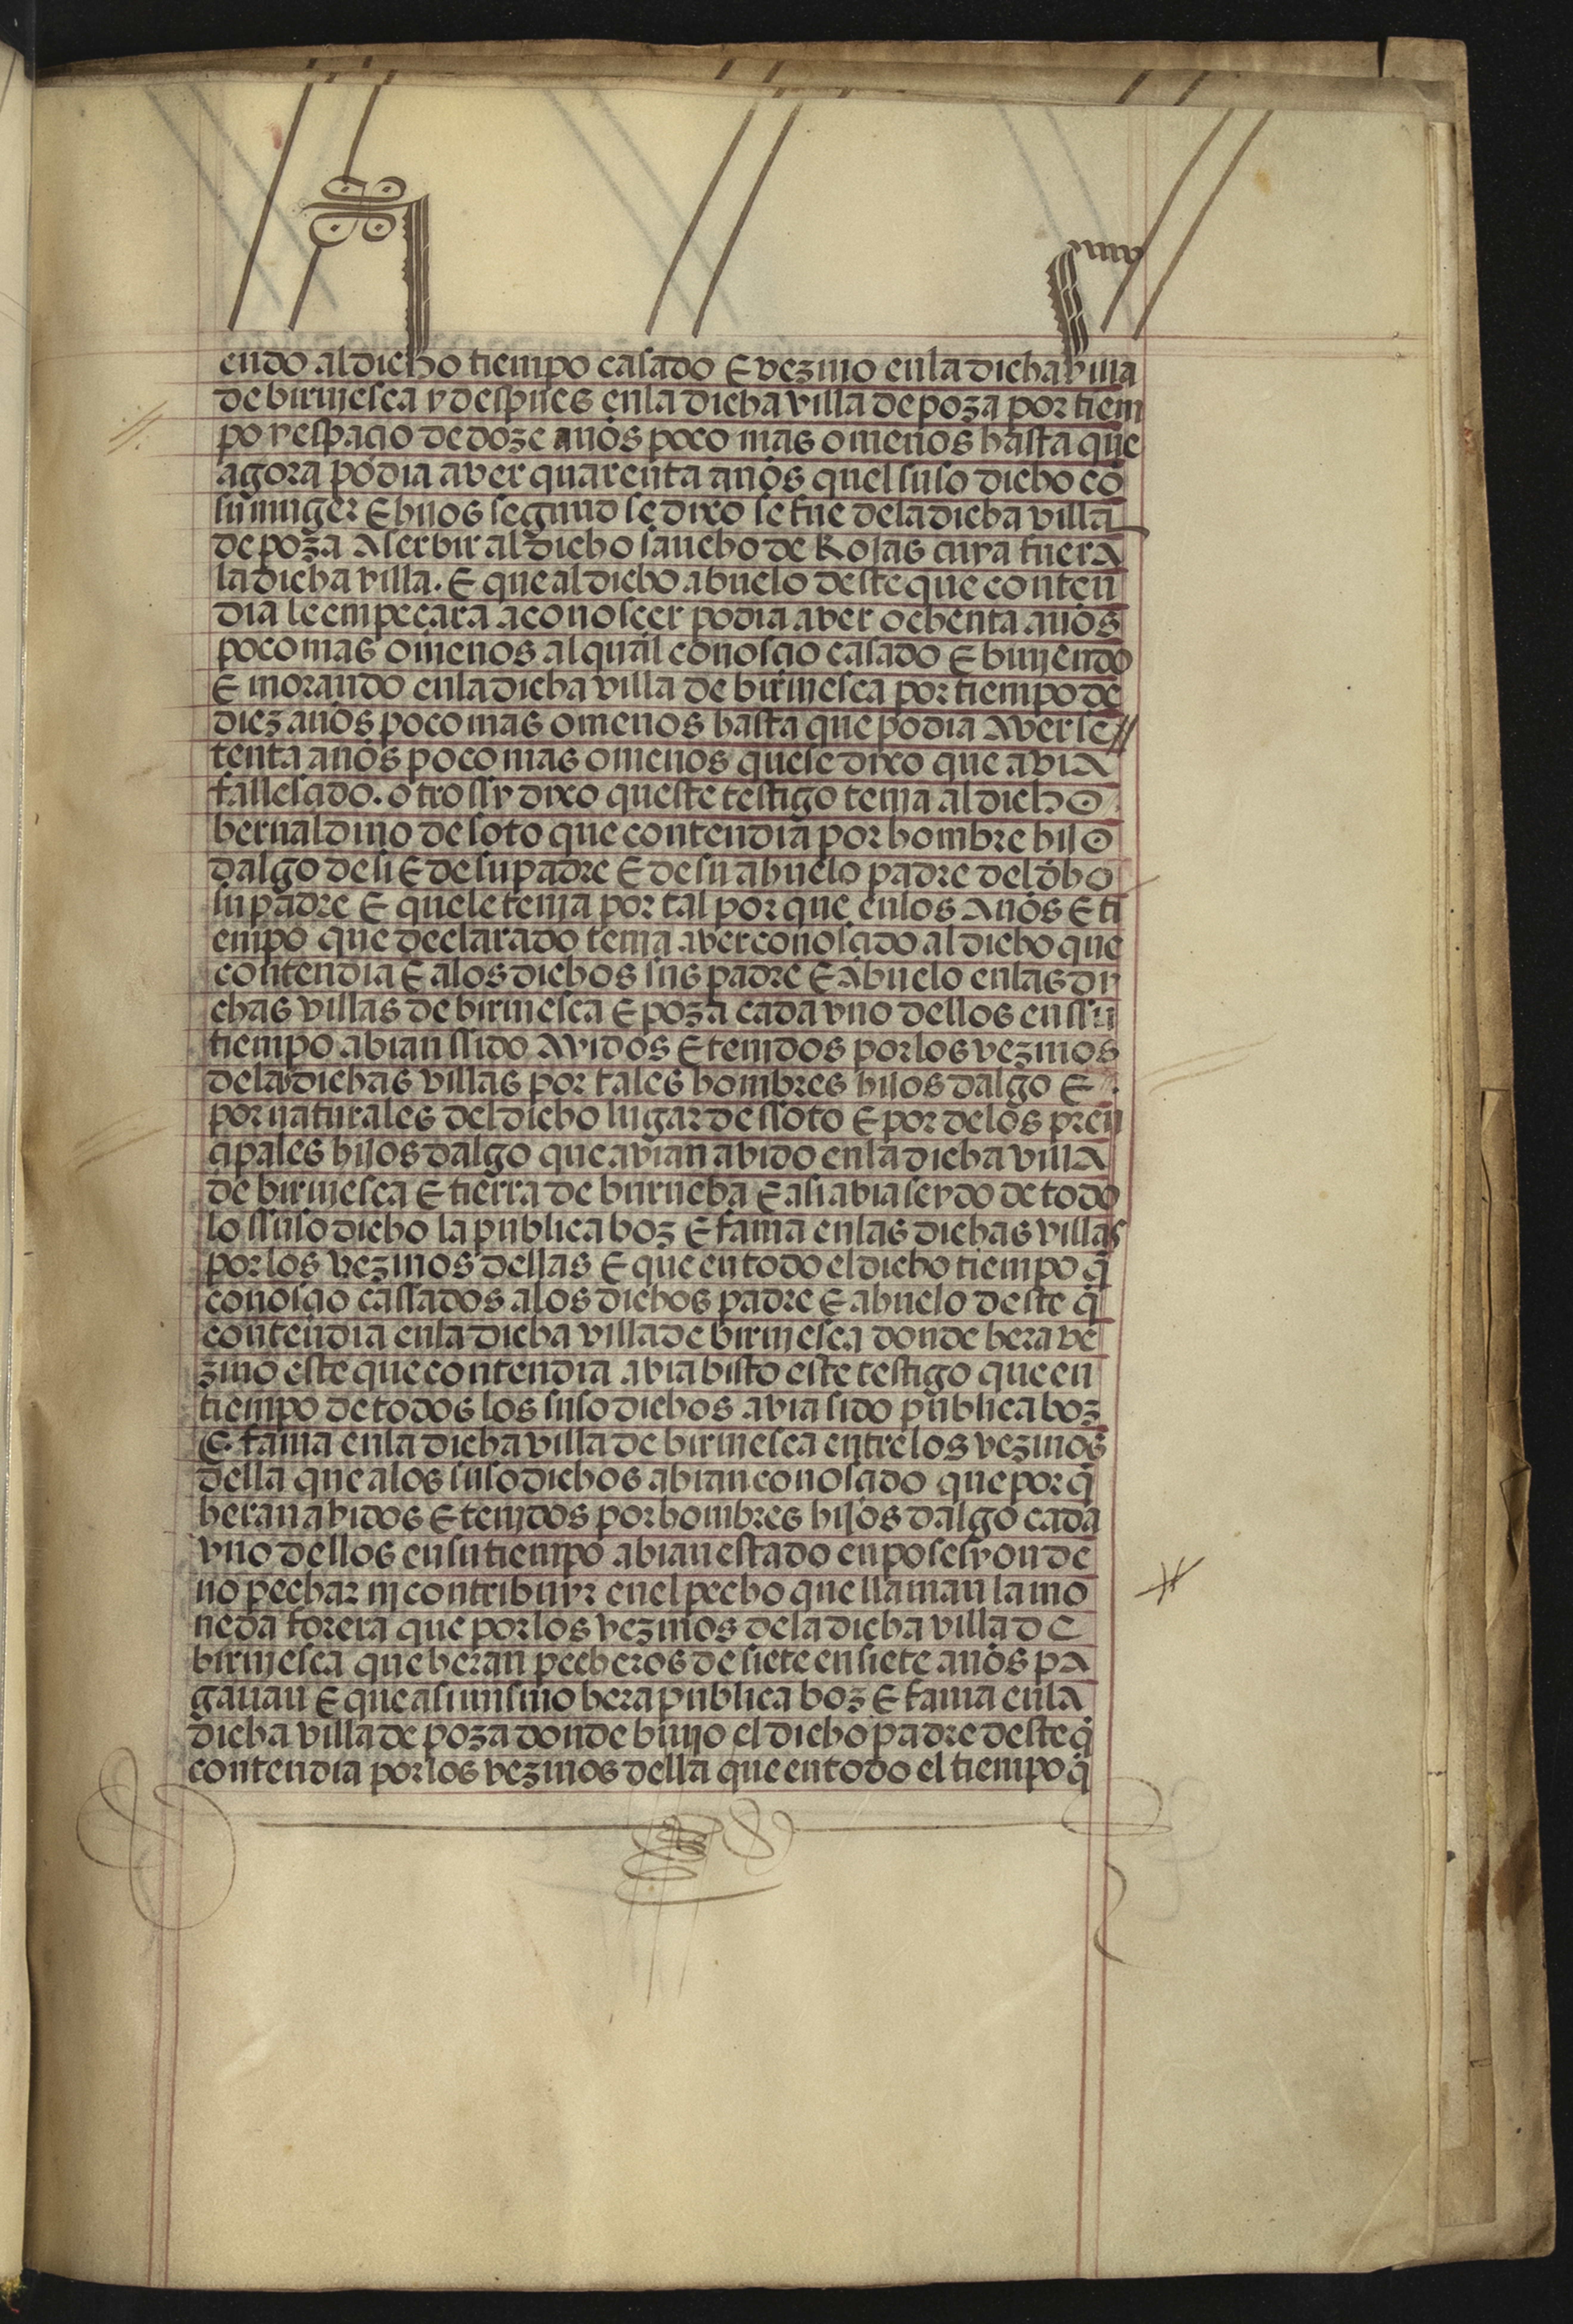 endo al dicho tiempo casado E vezino enla dicha villa
de birviesca y despues enla dicha villa de poza por tiem
po y espacio de doze años poco mas o menos hasta que
agora podia aver quarenta años quel suso dicho cõ
su muger E hijos segund se dixo se fue dela dicha villa
de poza A serbir al dicho sancho de Rojas cuya fuera
la dicha villa. E que al dicho abuelo deste que conten
dia le empeçara a conoscer podia aver ochenta años
poco mas o menos al qual conoscio casado E biujendo
E morando enla dicha villa de birviesca por tiempo de
diez años poco mas o menos hasta que podia Aver se//
tenta años poco mas o menos que se dixo que aviA
fallescido. otrossy dixo queste testigo tenja al dicho
bernaldino de soto que contendia por hombre hijo
dalgo de si E de su padre E de su abuelo padre del dho
su padre E que le tenja por tal por que enlos Años E ti
empo que declarado tenja aver conoscido al dicho que
contendia E alos dichos sus padre E Abuelo enlas di
chas villas de birviesca E poza cada vno dellos en ssu
tiempo abian ssido Avidos E tenidos por los vezinos
delas dichas villas por tales hombres hijos dalgo E
por naturales del dicho lugar de ssoto E por delos pren
cipales hijos dalgo que avian abido enla dicha villA
de birviesca E tierra de burueba E asi avia seydo de todo
lo ssuso dicho la publica boz E fama enlas dichas villas
por los vezinos dellas E que en todo el dicho tiempo q̃
conoscio cassados alos dichos padre E abuelo deste q̃
contendia enla dicha villa de birviesca donde hera ve
zino este que contendia avia bisto este testigo que en
tiempo de todos los suso dichos avia sido publica boz
E fama enla dicha villa de birviesca entre los vezinos
della que alos suso dichos abian conoscido que por q̃
heran abidos E tenjdos por hombres hijos dalgo cada
vno dellos en su tiempo abian estado en posesyon de
no pechar nj contribuyr enel pecho que llaman la mo
neda forera que por los vezinos dela dicha villa de
birviesca que heran pecheros de siete en siete años pA
gauan E que asimismo hera publica boz E fama enla
dicha villa de poza donde biujo el dicho padre deste q̃
contendia por los vezinos della que en todo el tiempo q̃